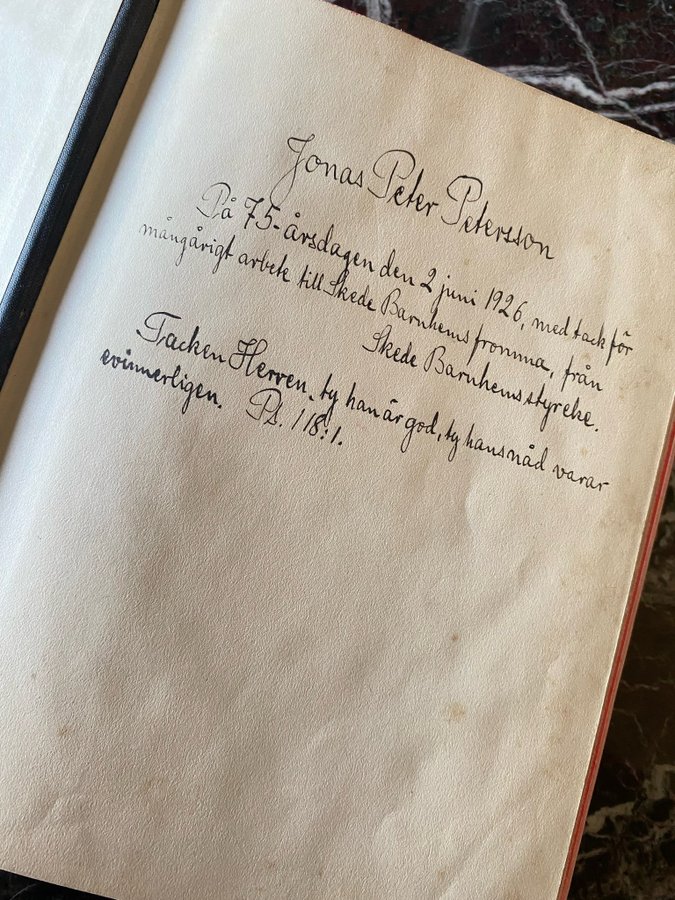 Jonas Peter Petersson
På 75-årsdagen den 2 juni 1926, med tack för
mångårigt arbete till Skede Barnhems fromma, från
Skede Barnhemsstyrelse.
Tacken Herren, ty han är god, ty hans nåd varar
evinnerligen. Ps. 118:1.